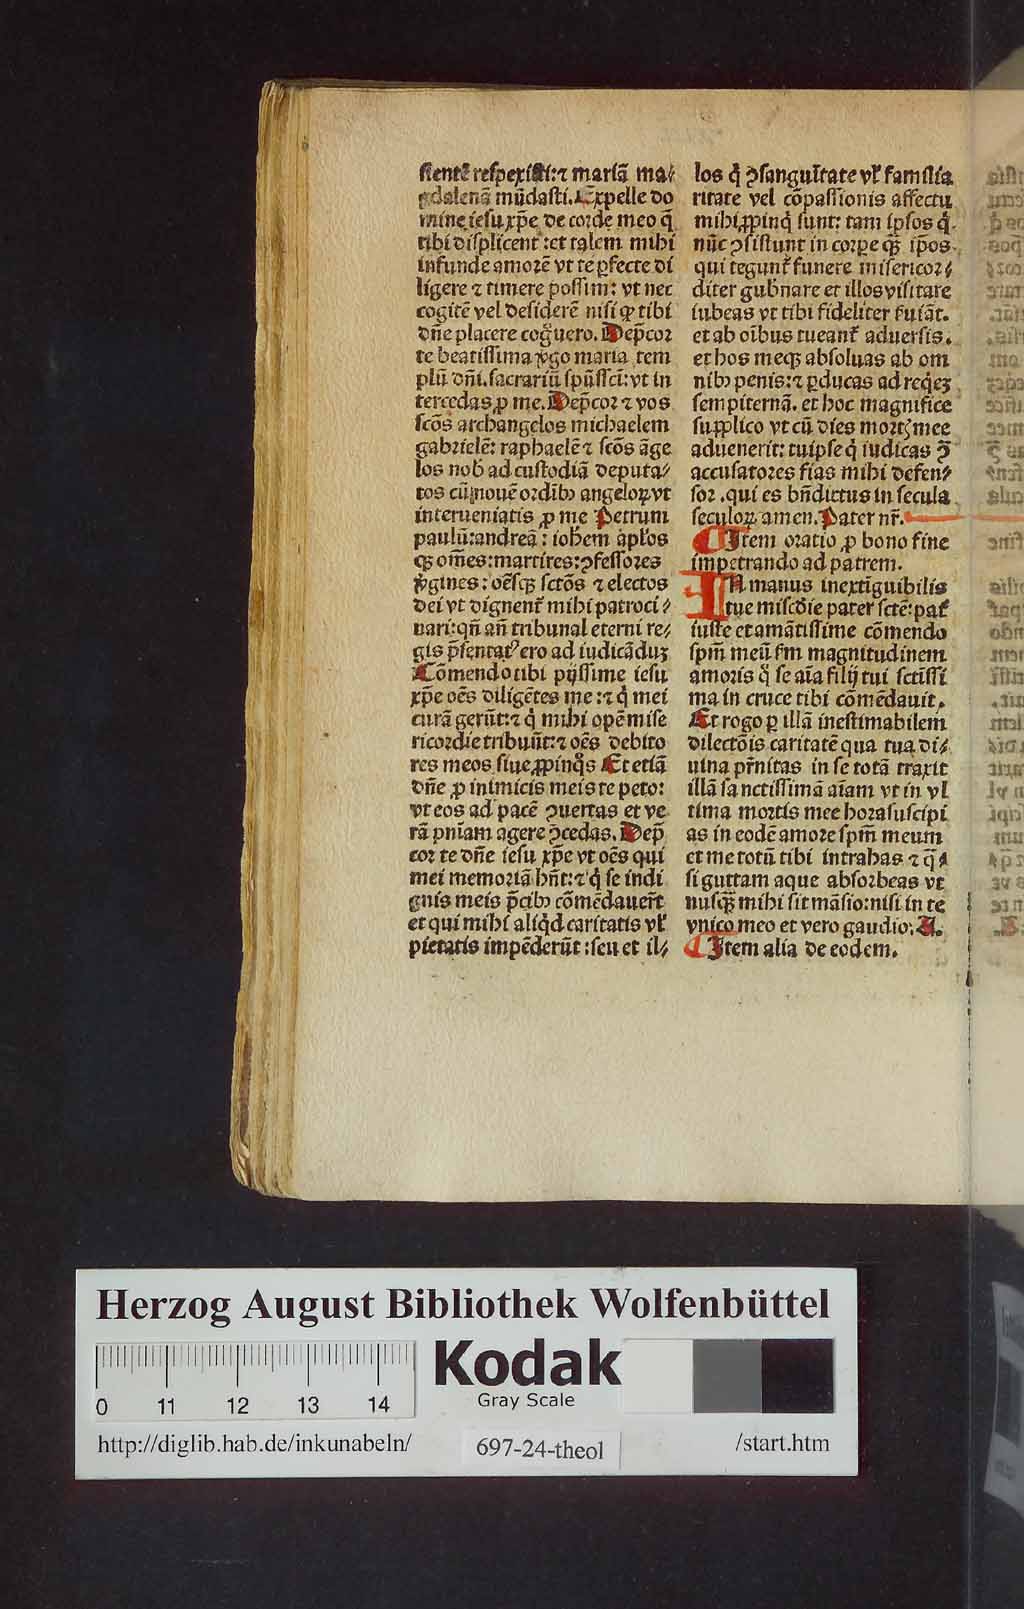 ſientē reſpexiſti:⁊ mariā ma⸗
gdalenā mūdaſti. Expelle do
mine ieſu xp̄e de corde meo q̄
tibi diſplicent :et talem mihi
infunde amorē vt te ꝑfecte di
ligere ⁊ timere poſſim: vt nec
cogitē vel deſiderē niſi qꝫ tibi
dn̄e placere cogͦuero. Dep̄cor
te beatiſſima v̓go maria tem
plū dn̄i. ſacrariū ſpūſſcī: vt in
tercedas ꝓ me. Dep̄cor ⁊ vos
ſcōs archangelos michaelem
gabrielē: raphaelē ⁊ ſcōs āge
los nob̓ ad cuſtodiā deputa⸗
tos cū nouē ordībꝫ angeloꝝ vt
interueniatis ꝓ me Petrum
paulū:andreā : ioh̄em ap̄los
qꝫ om̄es:martires:ↄfeſſores
v̓gines : oēſqꝫ ſctōs ⁊ electos
dei vt dignent᷑ mihi patroci⸗
nari:qn̄ an̄ tribunal eterni re⸗
gis p̄ſentatꝰ ero ad iudicāduꝫ
Cōmendo tibi pijſſime ieſu
xp̄e oēs diligētes me :⁊ q̇ mei
curā gerūt:⁊ q̇ mihi opē miſe
ricordie tribuūt:⁊ oēs debito
res meos ſiue ꝓpinq̊s Et etiā
dn̄e ꝓ inimicis meis te peto:
vt eos ad pacē ↄuertas et ve
rā pn̄iam agere ↄ̄cedas. Dep̄
cor te dn̄e ieſu xp̄e vt oēs qui
mei memoriā hn̄t:⁊ q̇ ſe indi
gnis meis p̄cibꝫ cōmēdauer̄t
et qui mihi aliq̇d caritatis vl̓
pietatis impēderūt :ſeu et il⸗
los q̇ ↄſanguītate vl̓ familia
ritate vel cōpaſſionis affectu
mihi ꝓpinq̇ ſunt: tam ipſos q̇
nūc ↄſiſtunt in corꝑe qꝫ̄ ip̄os
qui tegunt᷑ funere miſericor⸗
diter gub̓nare et illos viſitare
iubeas vt tibi fideliter ſ̓uiāt.
et ab oībus tueant᷑ aduerſis.
et hos meqꝫ abſoluas ab om
nibꝫ penis:⁊ ꝑducas ad req̇eꝫ
ſempiternā. et hoc magnifice
ſupplico vt cū dies mortꝭ mee
aduenerit: tu ipſe q̇ iudicas ↄ̄
accuſatores fias mihi defen⸗
ſor .qui es bn̄dictus in ſecula
ſeculoꝝ amen. Pater nr̄.
Item oratio ꝓ bono fine
impetrando ad patrem.
IN manus inextīguibilis
tue miſcd̓ie pater ſctē: pat᷑
iuſte et amātiſſime cōmendo
ſpm̄ meū ſm̄ magnitudinem
amoris q̊ ſe aīa filij tui ſctīſſi
ma in cruce tibi cōmēdauit.
Et rogo ꝑ illā ineſtimabilem
dilectōis caritatē qua tua di⸗
uina pr̄nitas in ſe totā traxit
illā ſanctiſſimā aīam vt in vl
tima mortis mee hora ſuſcipi
as in eodē amore ſpm̄ meum
et me totū tibi intrahas ⁊ q̄⸗
ſi guttam aque abſorbeas vt
nuſqꝫ̄ mihi ſit māſio:niſi in te
vnico meo et vero gaudio. A.
Item alia de eodem.
Herzog August Bibliothek Wolfenbüttel
0 11 12 13 14
Kodak
Gray Scale
http://diglib.hab.de/inkunabeln/
697-24-theol
/start.htm